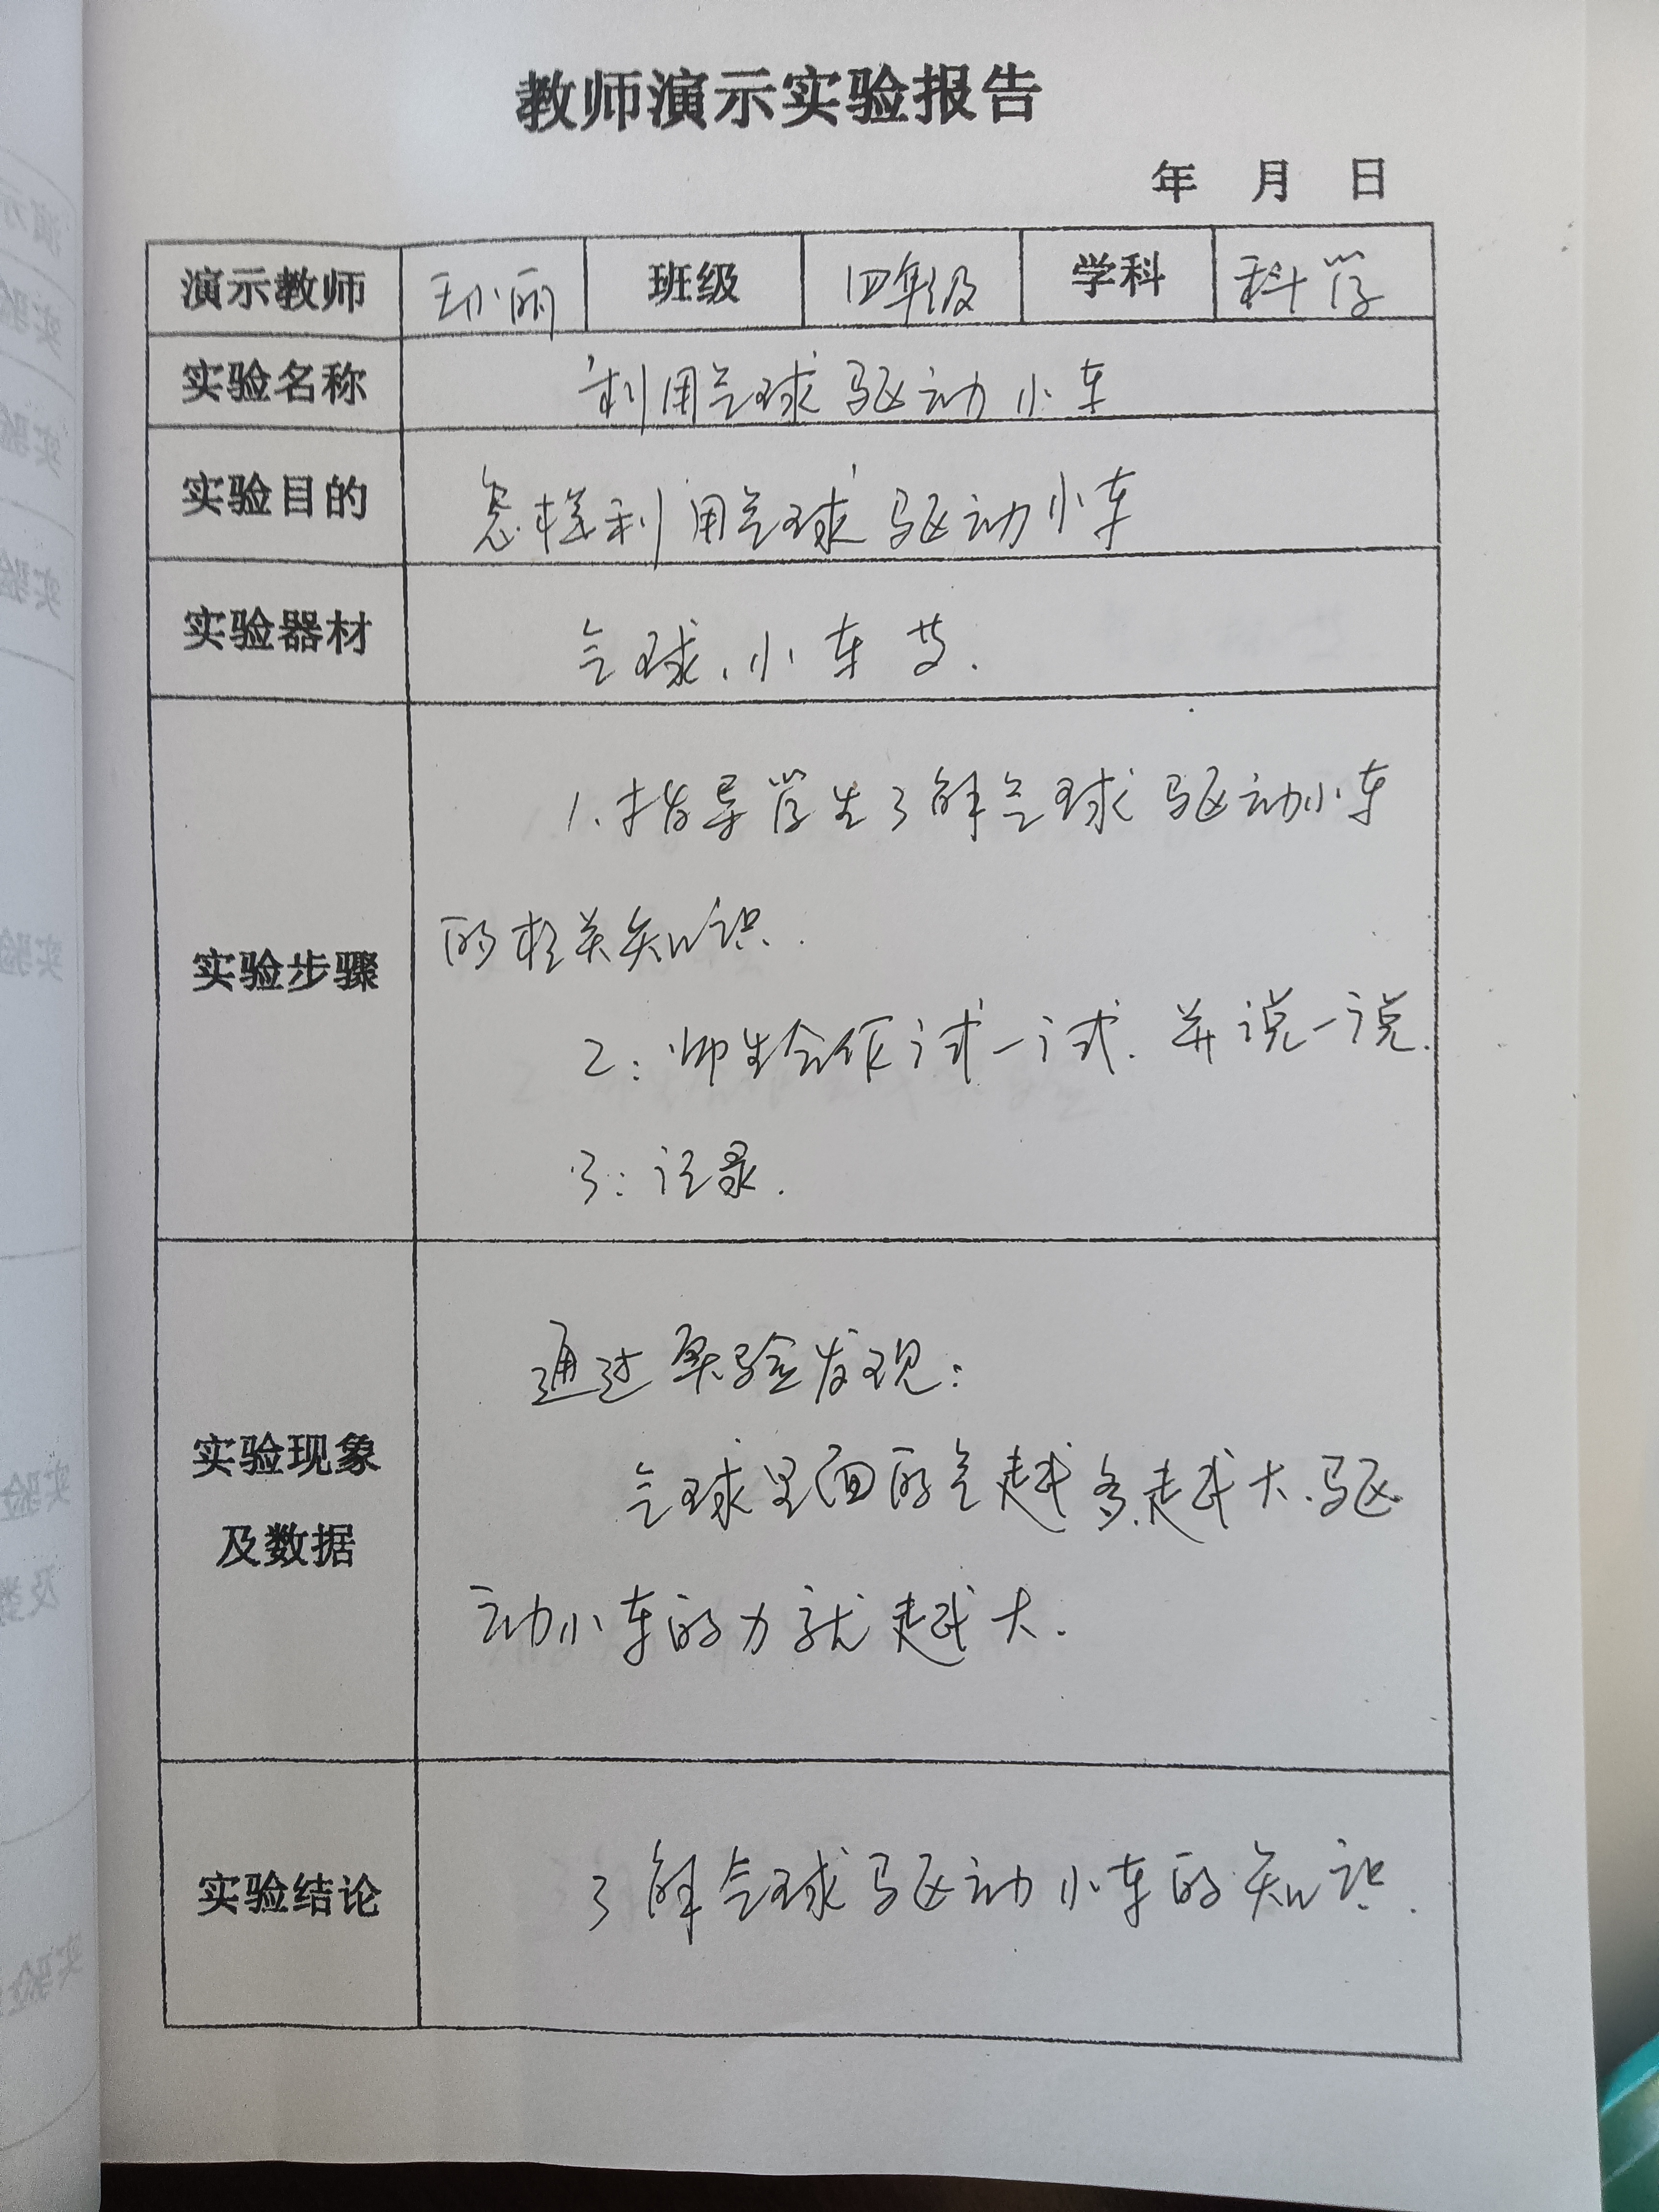 教师演示实验报告
年 月 日
演示教师 王小丽 班级 四年级 学科 科学
实验名称 利用气球驱动小车
实验目的 怎样利用气球驱动小车
实验器材 气球、小车等.
实验步骤
1、指导学生了解气球驱动小车
的相关知识.
2：师生合作试一试.并说一说.
3：记录.
实验现象
及数据
通过实验发现：
气球里面的气越多越大、驱
动小车的力就越大.
实验结论 了解气球驱动小车的知识.